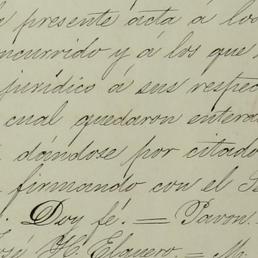 presente acta á los
oncurrido y á los que
jurídico a sus respec
cual quedaron entera
dándose por citado
firmando con el S
Doy fé. = Pavon.
José H. Elguero. = M.